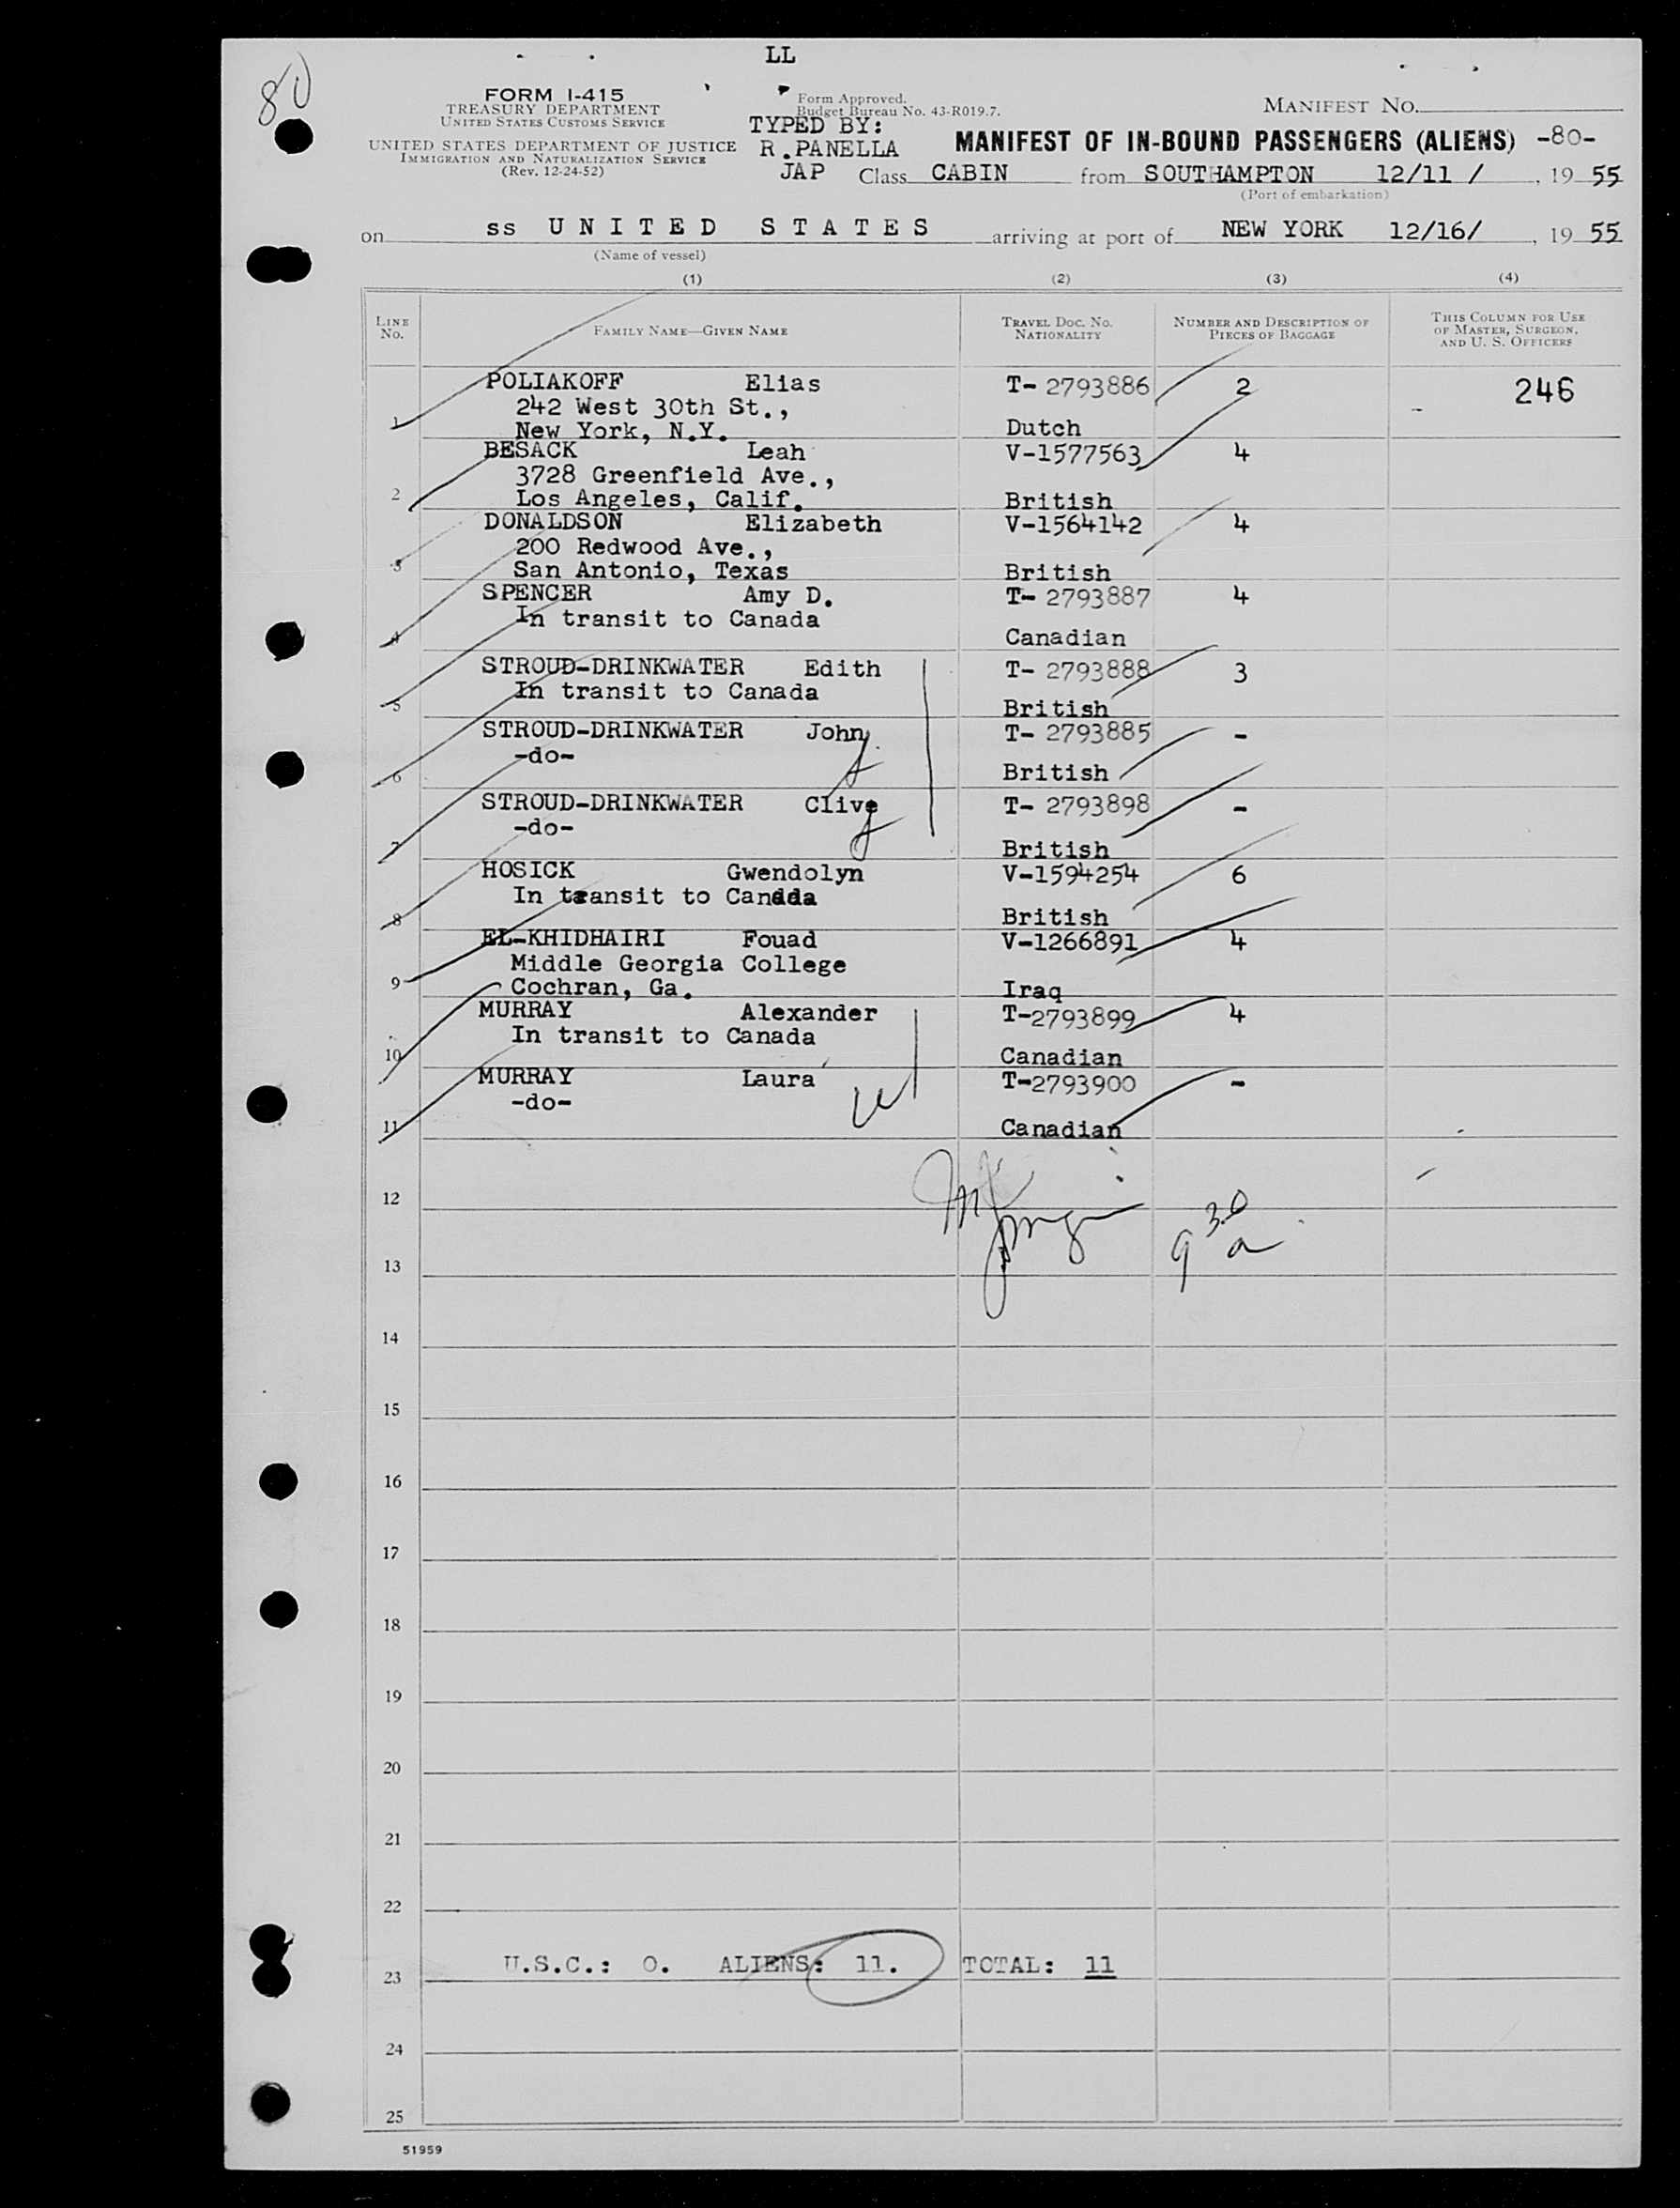 LL
80
FORM I-415
TREASURY DEPARTMENT
UNITED STATES CUSTOMS SERVICE
UNITED STATES DEPARTMENT OF JUSTICE
IMMIGRATION AND NATURALIZATION SERVICE
(Rev. 12-24-52)
Form Approved.
Budget Bureau No. 43-R019.7.
TYPED BY:
R.PANELLA
JAP
MANIFEST NO.
MANIFEST OF IN-BOUND PASSENGERS (ALIENS) -80-
Class CABIN from SOUTHAMPTON 12/11 / , 19 55
(Port of embarkation)
on ss UNITED STATES arriving at port of NEW YORK 12/16/ , 19 55
(Name of vessel)
(1) (2) (3) (4)
LINE No. FAMILY NAME—GIVEN NAME TRAVEL DOC. NO. NATIONALITY NUMBER AND DESCRIPTION OF PIECES OF BAGGAGE THIS COLUMN FOR USE OF MASTER, SURGEON, AND U. S. OFFICERS
POLIAKOFF Elias T- 2793886 2 246
242 West 30th St.,
1 New York, N.Y. Dutch
BESACK Leah V-1577563 4
3728 Greenfield Ave.,
2 Los Angeles, Calif. British
DONALDSON Elizabeth V-1564142 4
200 Redwood Ave.,
3 San Antonio, Texas British
SPENCER Amy D. T- 2793887 4
In transit to Canada
4 Canadian
STROUD-DRINKWATER Edith T- 2793888 3
In transit to Canada
5 British
STROUD-DRINKWATER John T- 2793885 -
-do-
6 British
STROUD-DRINKWATER Clive T- 2793898 -
-do-
7 British
HOSICK Gwendolyn V-1594254 6
In transit to Canada
8 British
EL-KHIDHAIRI Fouad V-1266891 4
Middle Georgia College
9 Cochran, Ga. Iraq
MURRAY Alexander T-2793899 4
In transit to Canada
10 Canadian
MURRAY Laura T-2793900 -
-do-
11 Canadian
12
9 30 a
13
14
15
16
17
18
19
20
21
22
23 U.S.C.: 0. ALIENS: 11. TOTAL: 11
24
25
51959